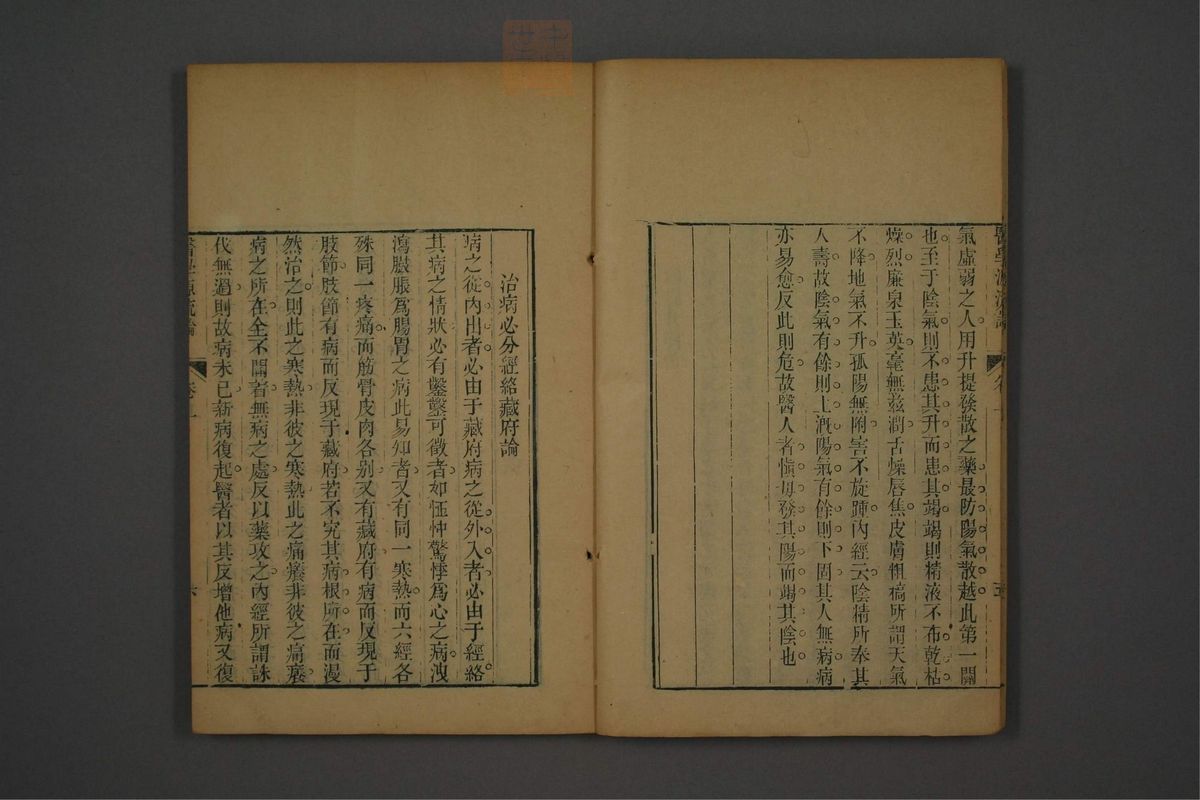 醫學源流論
卷
五
氣虛弱之人用升提發散之藥最防陽氣散越此第一關
也至于陰氣則不患其升而患其竭竭則精液不布乾枯
燥烈廉泉玉英毫無滋潤舌燥唇焦皮膚粗槁所謂天氣
不降地氣不升孤陽無附害不旋踵內經云陰精所奉其
人壽故陰氣有餘則上漑陽氣有餘則下固其人無病病
亦易愈反此則危故醫人者慎毋發其陽而竭其陰也
治病必分經絡藏府論
病之從內出者必由于藏府病之從外入者必由于經絡
其病之情狀必有鑿鑿可徵者如怔忡驚悸為心之病洩
瀉臌脹為腸胃之病此易知者又有同一寒熱而六經各
殊同一疼痛而筋骨皮肉各别又有藏府有病而反現于
肢節肢節有病而反現于藏府若不究其病根所在而漫
然治之則此之寒熱非彼之寒熱此之痛癢非彼之痛癢
病之所在全不關者無病之處反以藥攻之內經所謂誅
伐無過則故病未已新病復起醫者以其反增他病又復
醫學源流論
卷上
六